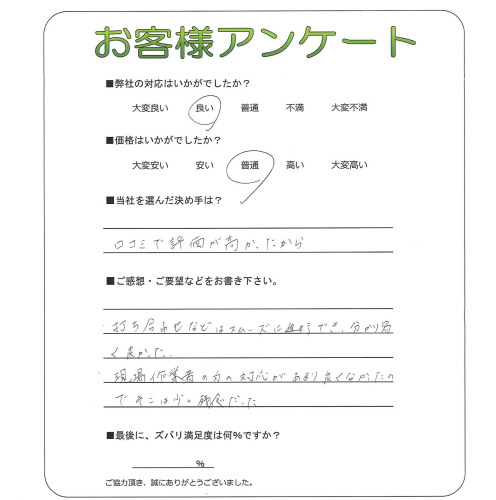 お客様アンケート
■弊社の対応はいかがでしたか？
大変良い 良い 普通 不満 大変不満
■価格はいかがでしたか？
大変安い 安い 普通 高い 大変高い
■当社を選んだ決め手は？
口コミで評価が高かったから
■ご感想・ご要望などをお書き下さい。
打ち合わせなどはスムーズにでき、分かり易
く良かった。
現場作業者の方の対応があまり良くなかったの
でそこは少し残念だった
■最後に、ズバリ満足度は何%ですか？
%
ご協力頂き、誠にありがとうございました。